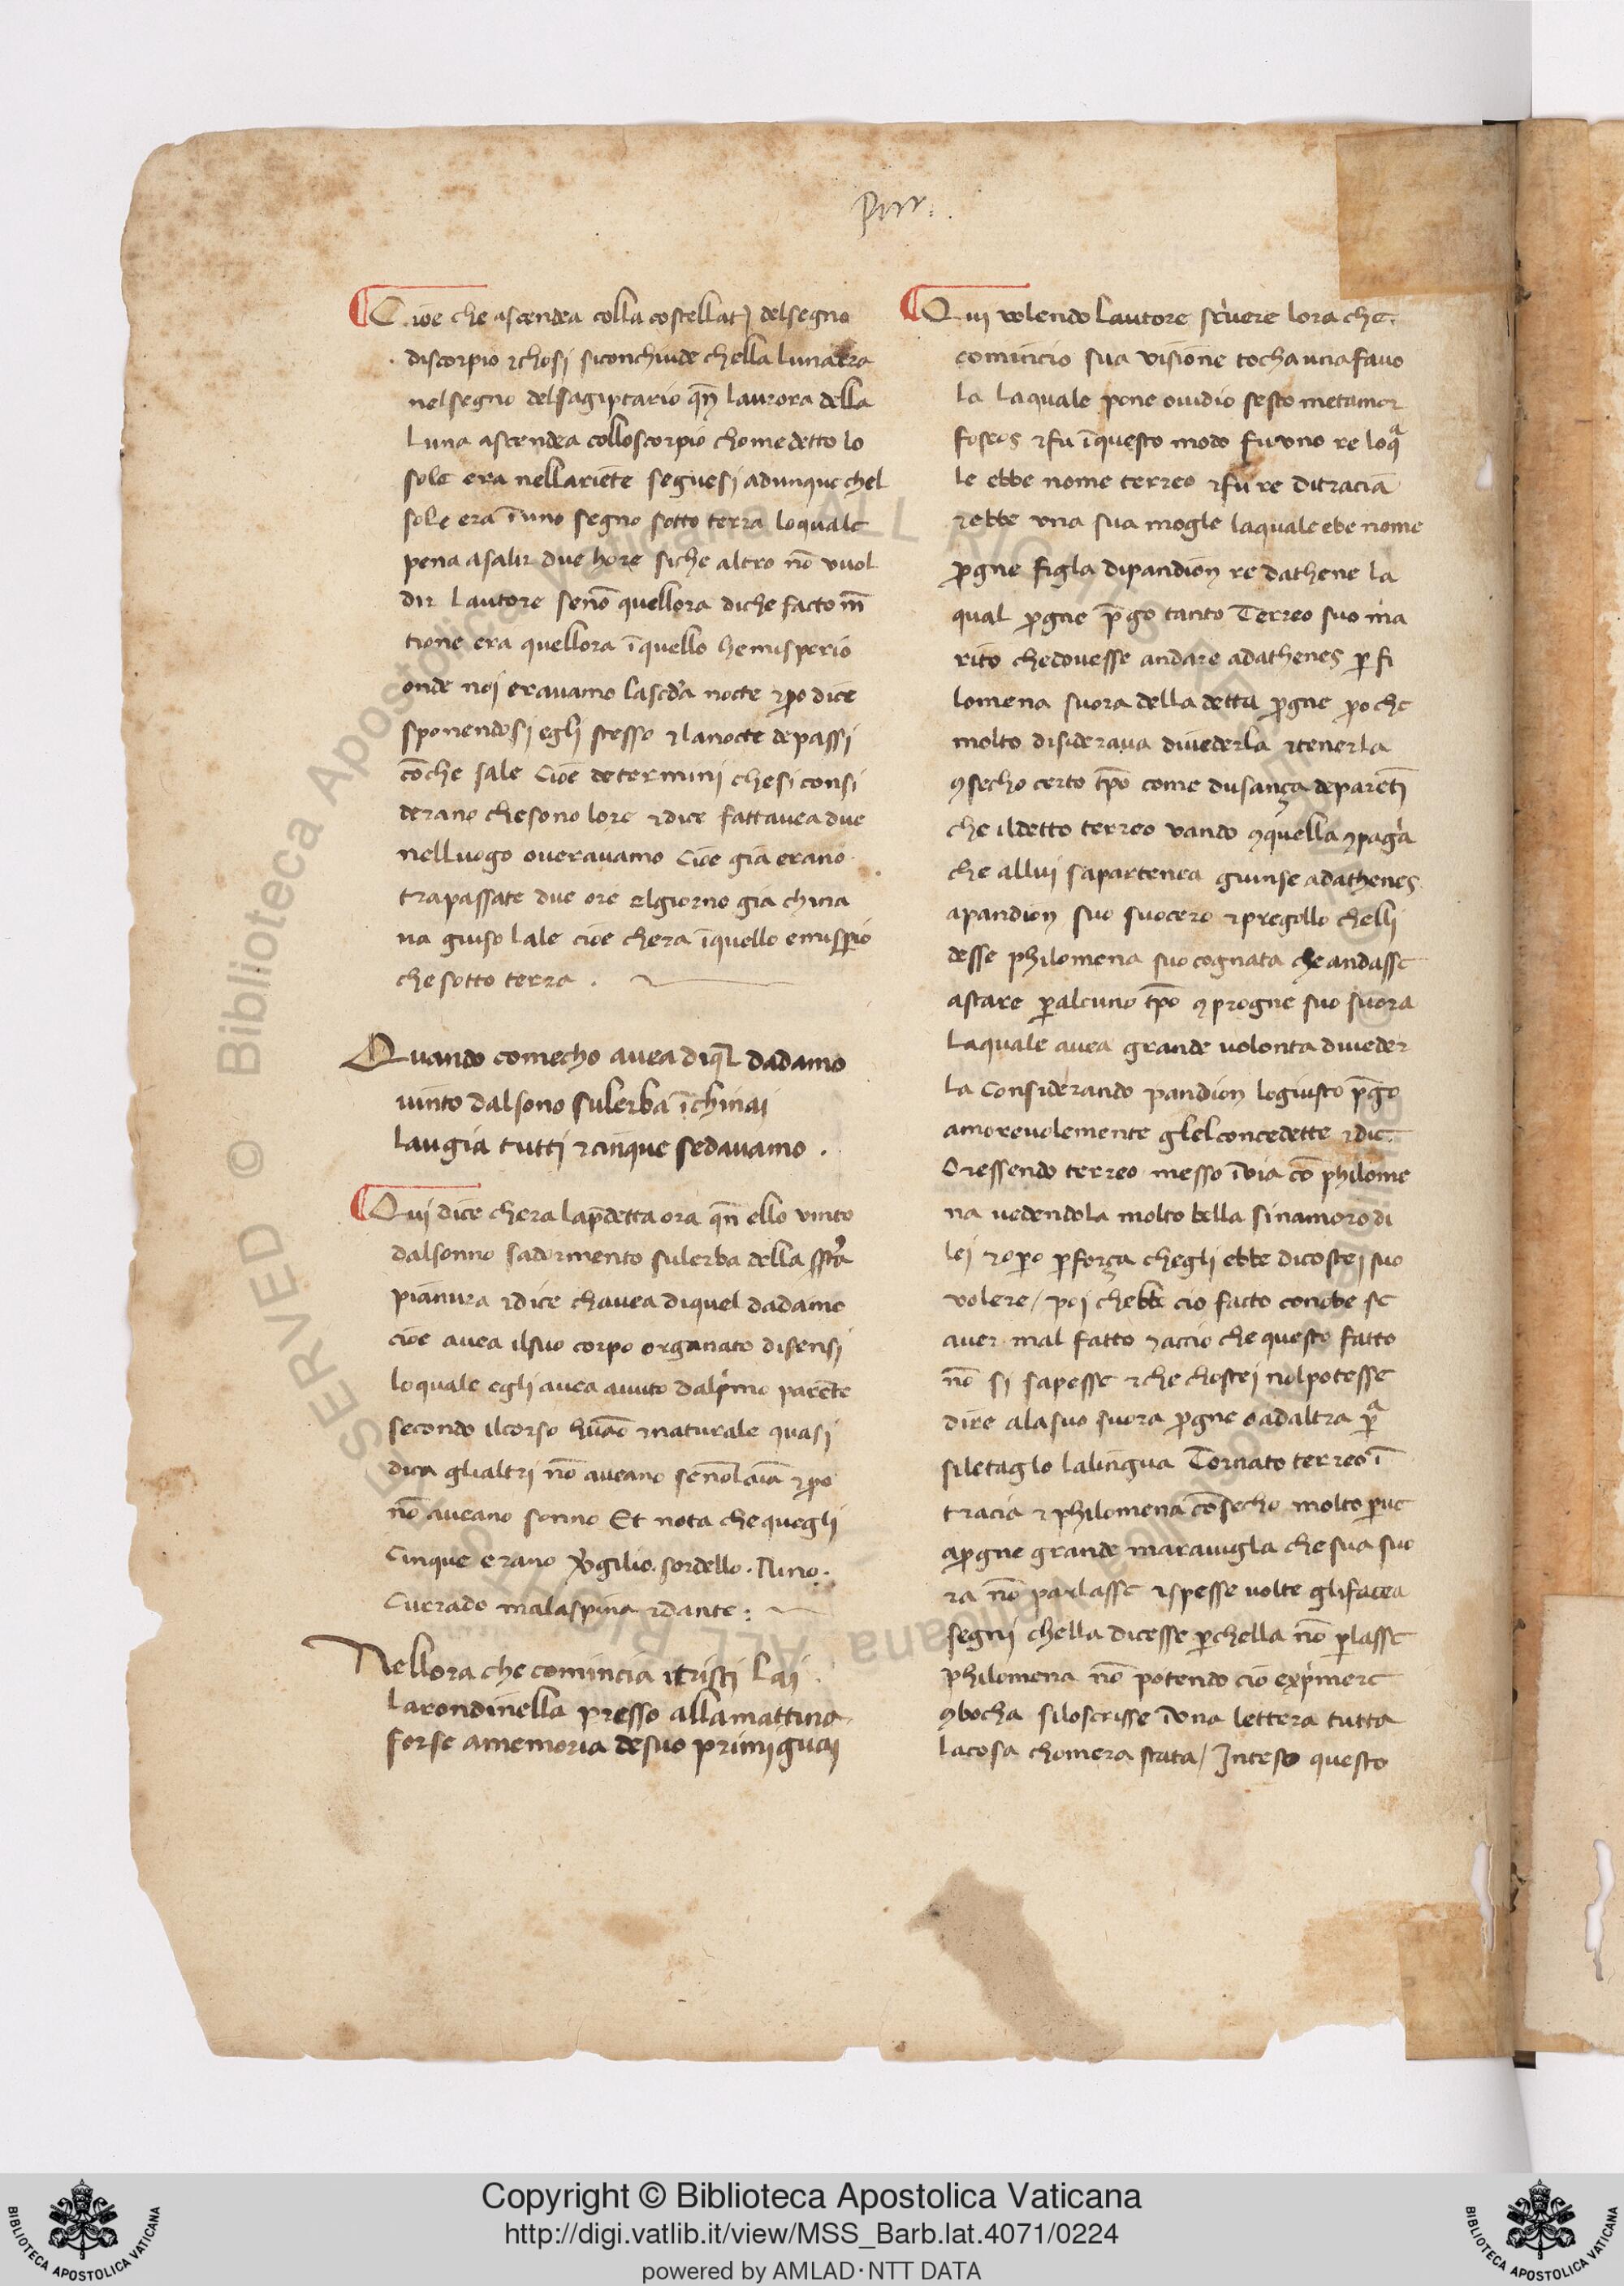 Purr.
Cioe che ascendea colla costellatj delsegno
discorpio ⁊chosi siconchiude chella luna era
nelsegno delsagiptario qn̄ laurora della
luna ascendea colloscorpio chome detto lo
sole era nellariete seguesj adunque chel
sole era ī uno segno sotto terra loquale
pena asalir due hore siche altro nō vuol
dir lautore senō quellora diche facto mē
tione era quellora īquello hemisperio
onde noj eravamo lascd̄a nocte ⁊po dice
sponendosj eglj stesso ⁊lanocte depassi
cōche sale Cioe determini chesi consi
derano chesono lore ⁊dice fattavea due
nelluogo overavamo Cioe gia erano
trapassate due ore elgiorno gia china
na giuso lale cioe chera īquello emisperio
che sotto terra .
Quando comecho avea diql̄ dadamo
uinto dalsono sulerba īchinaj
laugia tuttj ⁊cinque sedavamo .
Quj dice chera lapdetta ora qn̄ ello vinto
dalsonno sadormento sulerba della sc̄ta
pianura ⁊dice chavea diquel dadamo
cioe avea ilsuo corpo organato disensj
loquale egli avea avuto dalp̄mo parente
secondo ilcorso huāo ⁊naturale quasj
dica glialtri nō aveano senōlaīa ⁊po
nō aveano sonno Et nota chequegli
Cinque erano v̄gilio . sordello . Nino .
Currado malaspina ⁊dante :
Nellora che comincia itristj laj
larondinella presso allamattina
forse amemoria desuo primj guaj
Quj volendo lautore sc̄vere lora che
comincio sua visione tocha una favo
la laquale pone ovidio sesto metamor
foseos ⁊fu īquesto modo fu uno re loqa
le ebbe nome terreo ⁊fu re ditracia
⁊ebbe una sua mogle laquale ebe nome
p̄gne figla dipandion re dathene la
qual p̄gne p̄go tanto Terreo suo ma
rito chedovesse andare adathenes p̄ fi
lomena suora della detta p̄gne poche
molto disiderava divederla ⁊tenerla
ꝯsecho certo tp̄o come dusança deparentj
che ildetto terreo vando ꝯquella ꝯpaḡa
che allui sapartenea giunse adathenes
apandion suo suocero ⁊pregollo chelli
desse philomena suo cognata che andasse
astare p̄alcuno tp̄o ꝯ progne suo suora
laquale avea grande volonta diveder
la Considerando pandion logiusto p̄go
amorevolemente glelconcedette ⁊dic̄
Oressendo terreo messo īvia cō philome
na vedendola molto bella sinamoro di
lei ⁊opo p̄força chegli ebbe dicostej suo
volere / poj chebbe cio facto conobe se
aver mal fatto ⁊accio che questo fatto
nō si sapesse ⁊che chostej nolpotesse
dire alasuo suora p̄gne oadaltra p̄a
siletaglo lalingua Tornato terreo ī
tracia ⁊philomena cōsecho molto p̄ve
ap̄gne grande maravigla che sua suo
ra nō parlasse ⁊spesse volte glifacea
segni chella dicesse p̄chella nō p̄lasse
philomena nō potendo cio exp̄mere
ꝯbocha siloscrisse īuna lettera tutta
lacosa chomera stata / Inteso questo
Copyright © Biblioteca Apostolica Vaticana
http://digi.vatlib.it/view/MSS_Barb.lat.4071/0224
powered by AMLAD·NTT DATA
BIBLIOTECA APOSTOLICA VATICANA
BIBLIOTECA APOSTOLICA VATICANA